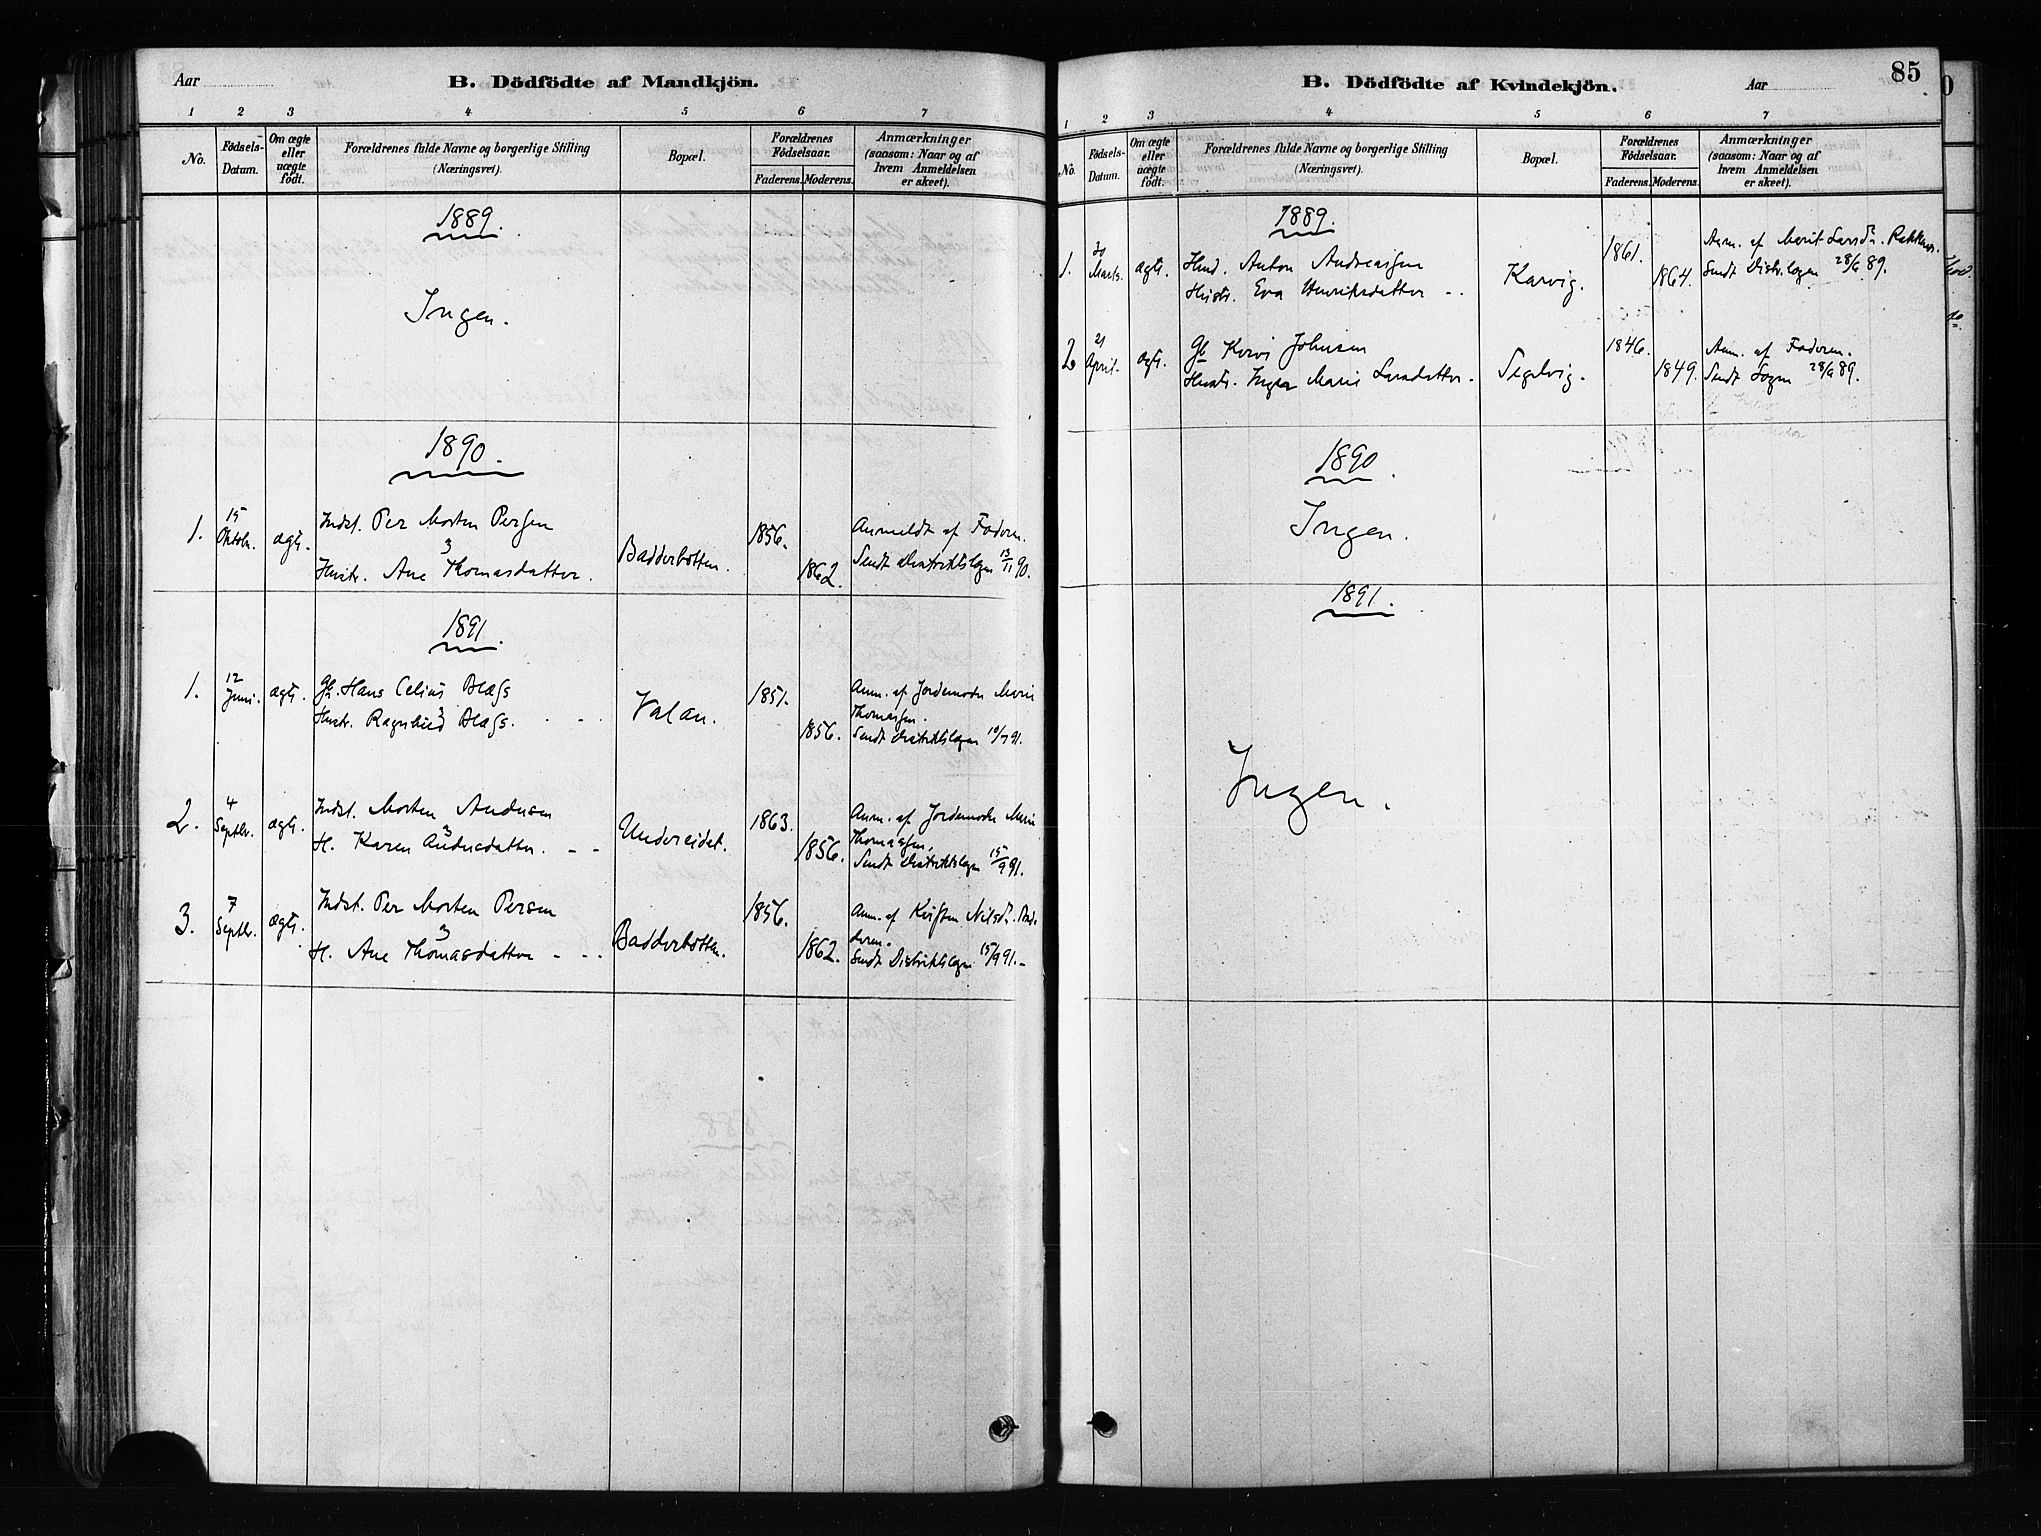 Aar
B. Dödfödte af Mandkjön.
1 2 3 4 5 6 7
No.
Födsels-
Datum.
Om ægte
eller
uægte
födt.
Forældrenes fulde Navne og borgerlige Stilling
(Næringsvei).
Bopæl.
Forældrenes
Födselsaar.
Faderens. Moderens.
Anmærkninger
(saasom: Naar og af
hvem Anmeldelsen
er skeet).
1889.
Ingen.
1890.
1. 15 Oktob. ægte. Indst. Per Morten Persen
Hustr. Ane Thomasdatter.
3
Badderbotten.
1856.
1862.
Anmeldt af Faderen.
Sendt Distriktslægen 13/11 90.
1891.
1. 12 Juni. ægte. Hans Celius
Hustr. Ragnhild
3
Valan.
1851.
1856.
Anm. af Jordemoder Marie
Thomassen.
Sendt Distriktslægen 10/7 91.
2. 4 Septbr. ægte. Indst. Morten Andersen
H. Karen Andersdatter.
3
Undereidet.
1863.
1856.
Anm. af Jordemoder Marie
Thomassen.
Sendt Distriktslægen 15/9 91.
3. 7 Septbr. ægte. Indst. Per Morten Persen
H. Ane Thomasdatter
3
Badderbotten.
1856.
1862.
Anm. af Nilsd. Bad-
deren.
Sendt Distriktslægen 15/9 91.
85
B. Dödfödte af Kvindekjön.
Aar
1 2 3 4 5 6 7
No.
Födsels-
Datum.
Om ægte
eller
uægte
födt.
Forældrenes fulde Navne og borgerlige Stilling
(Næringsvei).
Bopæl.
Forældrenes
Födselsaar.
Faderens. Moderens.
Anmærkninger
(saasom: Naar og af
hvem Anmeldelsen
er skeet).
1889.
1. 30 Marts. ægte. Anton Andreassen
Hustr. Eva Henriksdatter
Karvig.
1861.
1864.
Anm. af Marit Larsd.
Sendt Distr.lægen 28/6 89.
2 21 April. ægte. Johnsen
Hustr. Inger Marie Larsdatter.
Segelvig.
1846.
1849.
Anm. af Faderen.
Sendt Lægen 28/6 89.
1890.
Ingen.
1891.
Ingen.